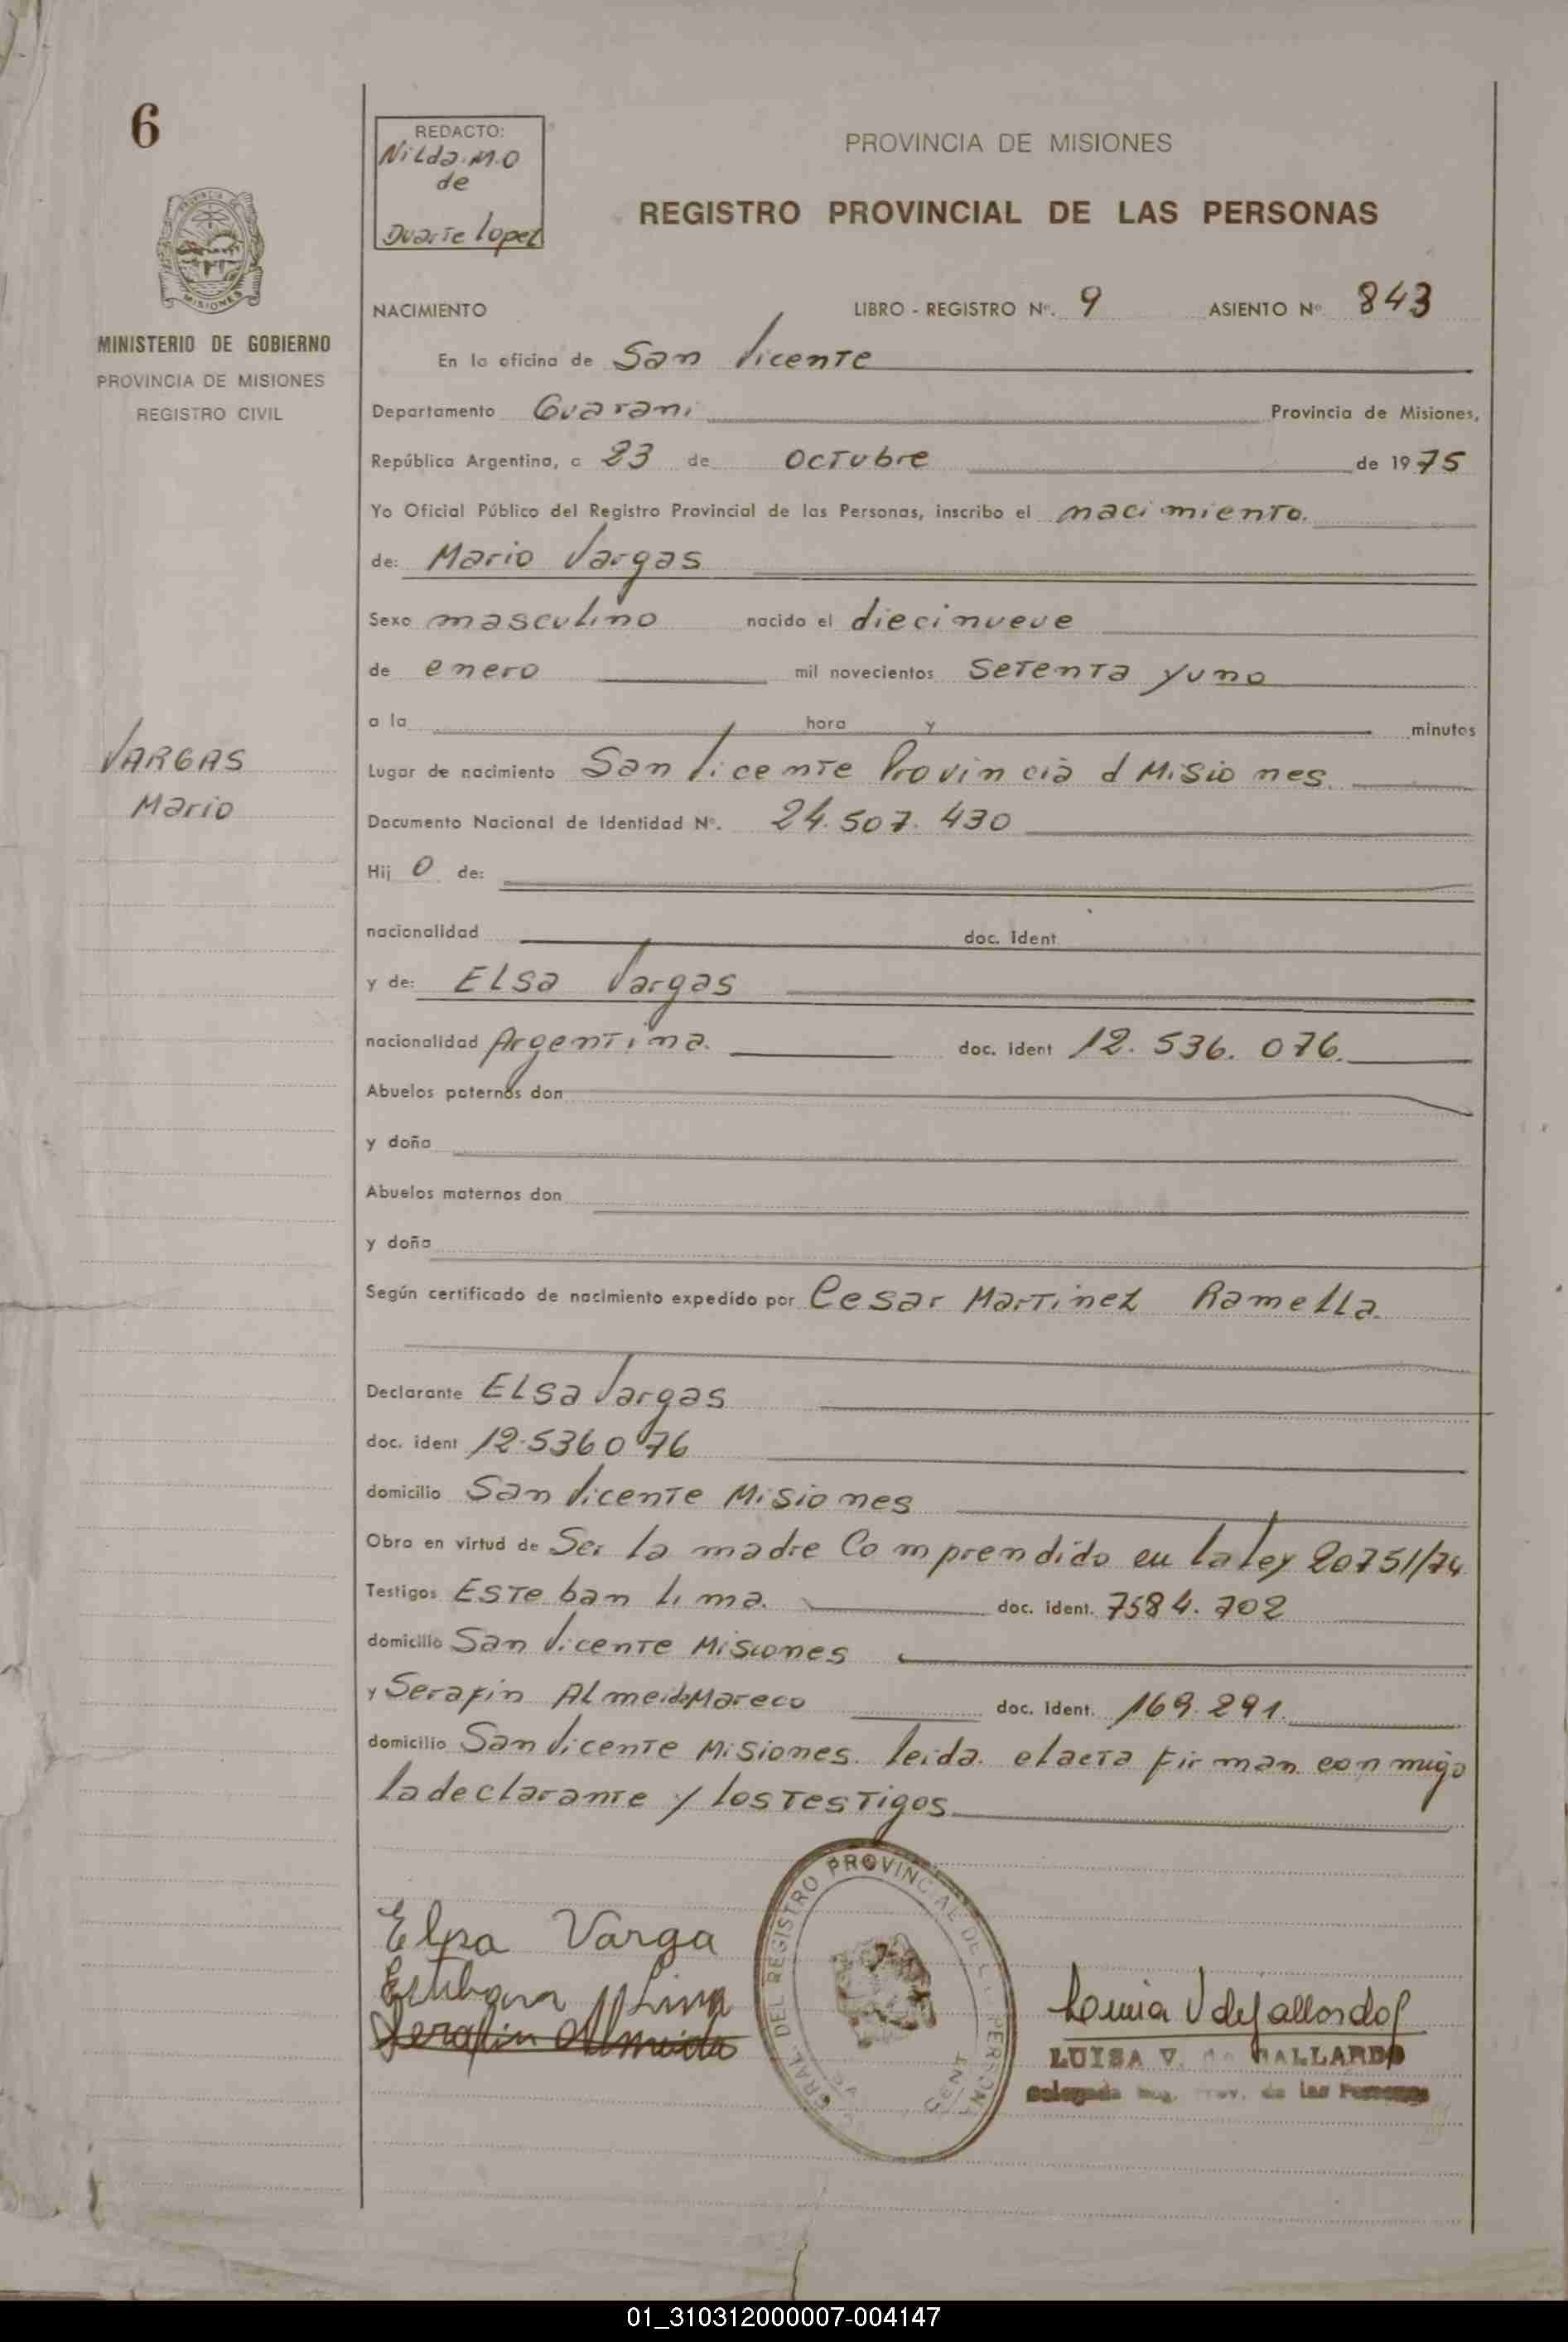 6
REDACTO:
Nilda.M.O
de
Duarte lopez
PROVINCIA DE MISIONES
REGISTRO PROVINCIAL DE LAS PERSONAS
PROVINCIA DE
MISIONES
MINISTERIO DE GOBIERNO
PROVINCIA DE MISIONES
REGISTRO CIVIL
NACIMIENTO LIBRO - REGISTRO Nº. 9 ASIENTO Nº 843
En la oficina de San Vicente
Departamento Guarani Provincia de Misiones,
República Argentina, a 23 de Octubre de 1975
Yo Oficial Público del Registro Provincial de las Personas, inscribo el nacimiento.
de: Mario Vargas
Sexo masculino nacido el diecinueve
de enero mil novecientos Setenta y uno
a la hora y minutos
VARGAS
Mario
Lugar de nacimiento San Vicente Provincia d Misiones.
Documento Nacional de Identidad Nº. 24.507.430
Hij o de:
nacionalidad doc. ident
y de: Elsa Vargas
nacionalidad Argentina. doc. ident 12.536.076.
Abuelos paternos don
y doña
Abuelos maternos don
y doña
Según certificado de nacimiento expedido por Cesar Martinez Ramella.
Declarante Elsa Vargas
doc. ident 12.536076
domicilio San Vicente Misiones
Obra en virtud de Ser la madre Comprendido en la ley 20751/74
Testigos Esteban lima. doc. ident. 7584.702
domicilio San Vicente Misiones
y Serafin Almeida Mareco doc. ident. 169.291.
domicilio San Vicente Misiones. leida. el acta firman conmigo
la declarante y los testigos
Elsa Varga
Esteban Lima
Serafin Almeida
GRAL. DEL REGISTRO PROVINCIAL DE PERSONA
Luisa V de Gallardo
LUISA V. de GALLARDO
Delegada Reg. Prov. de las Personas
01_310312000007-004147